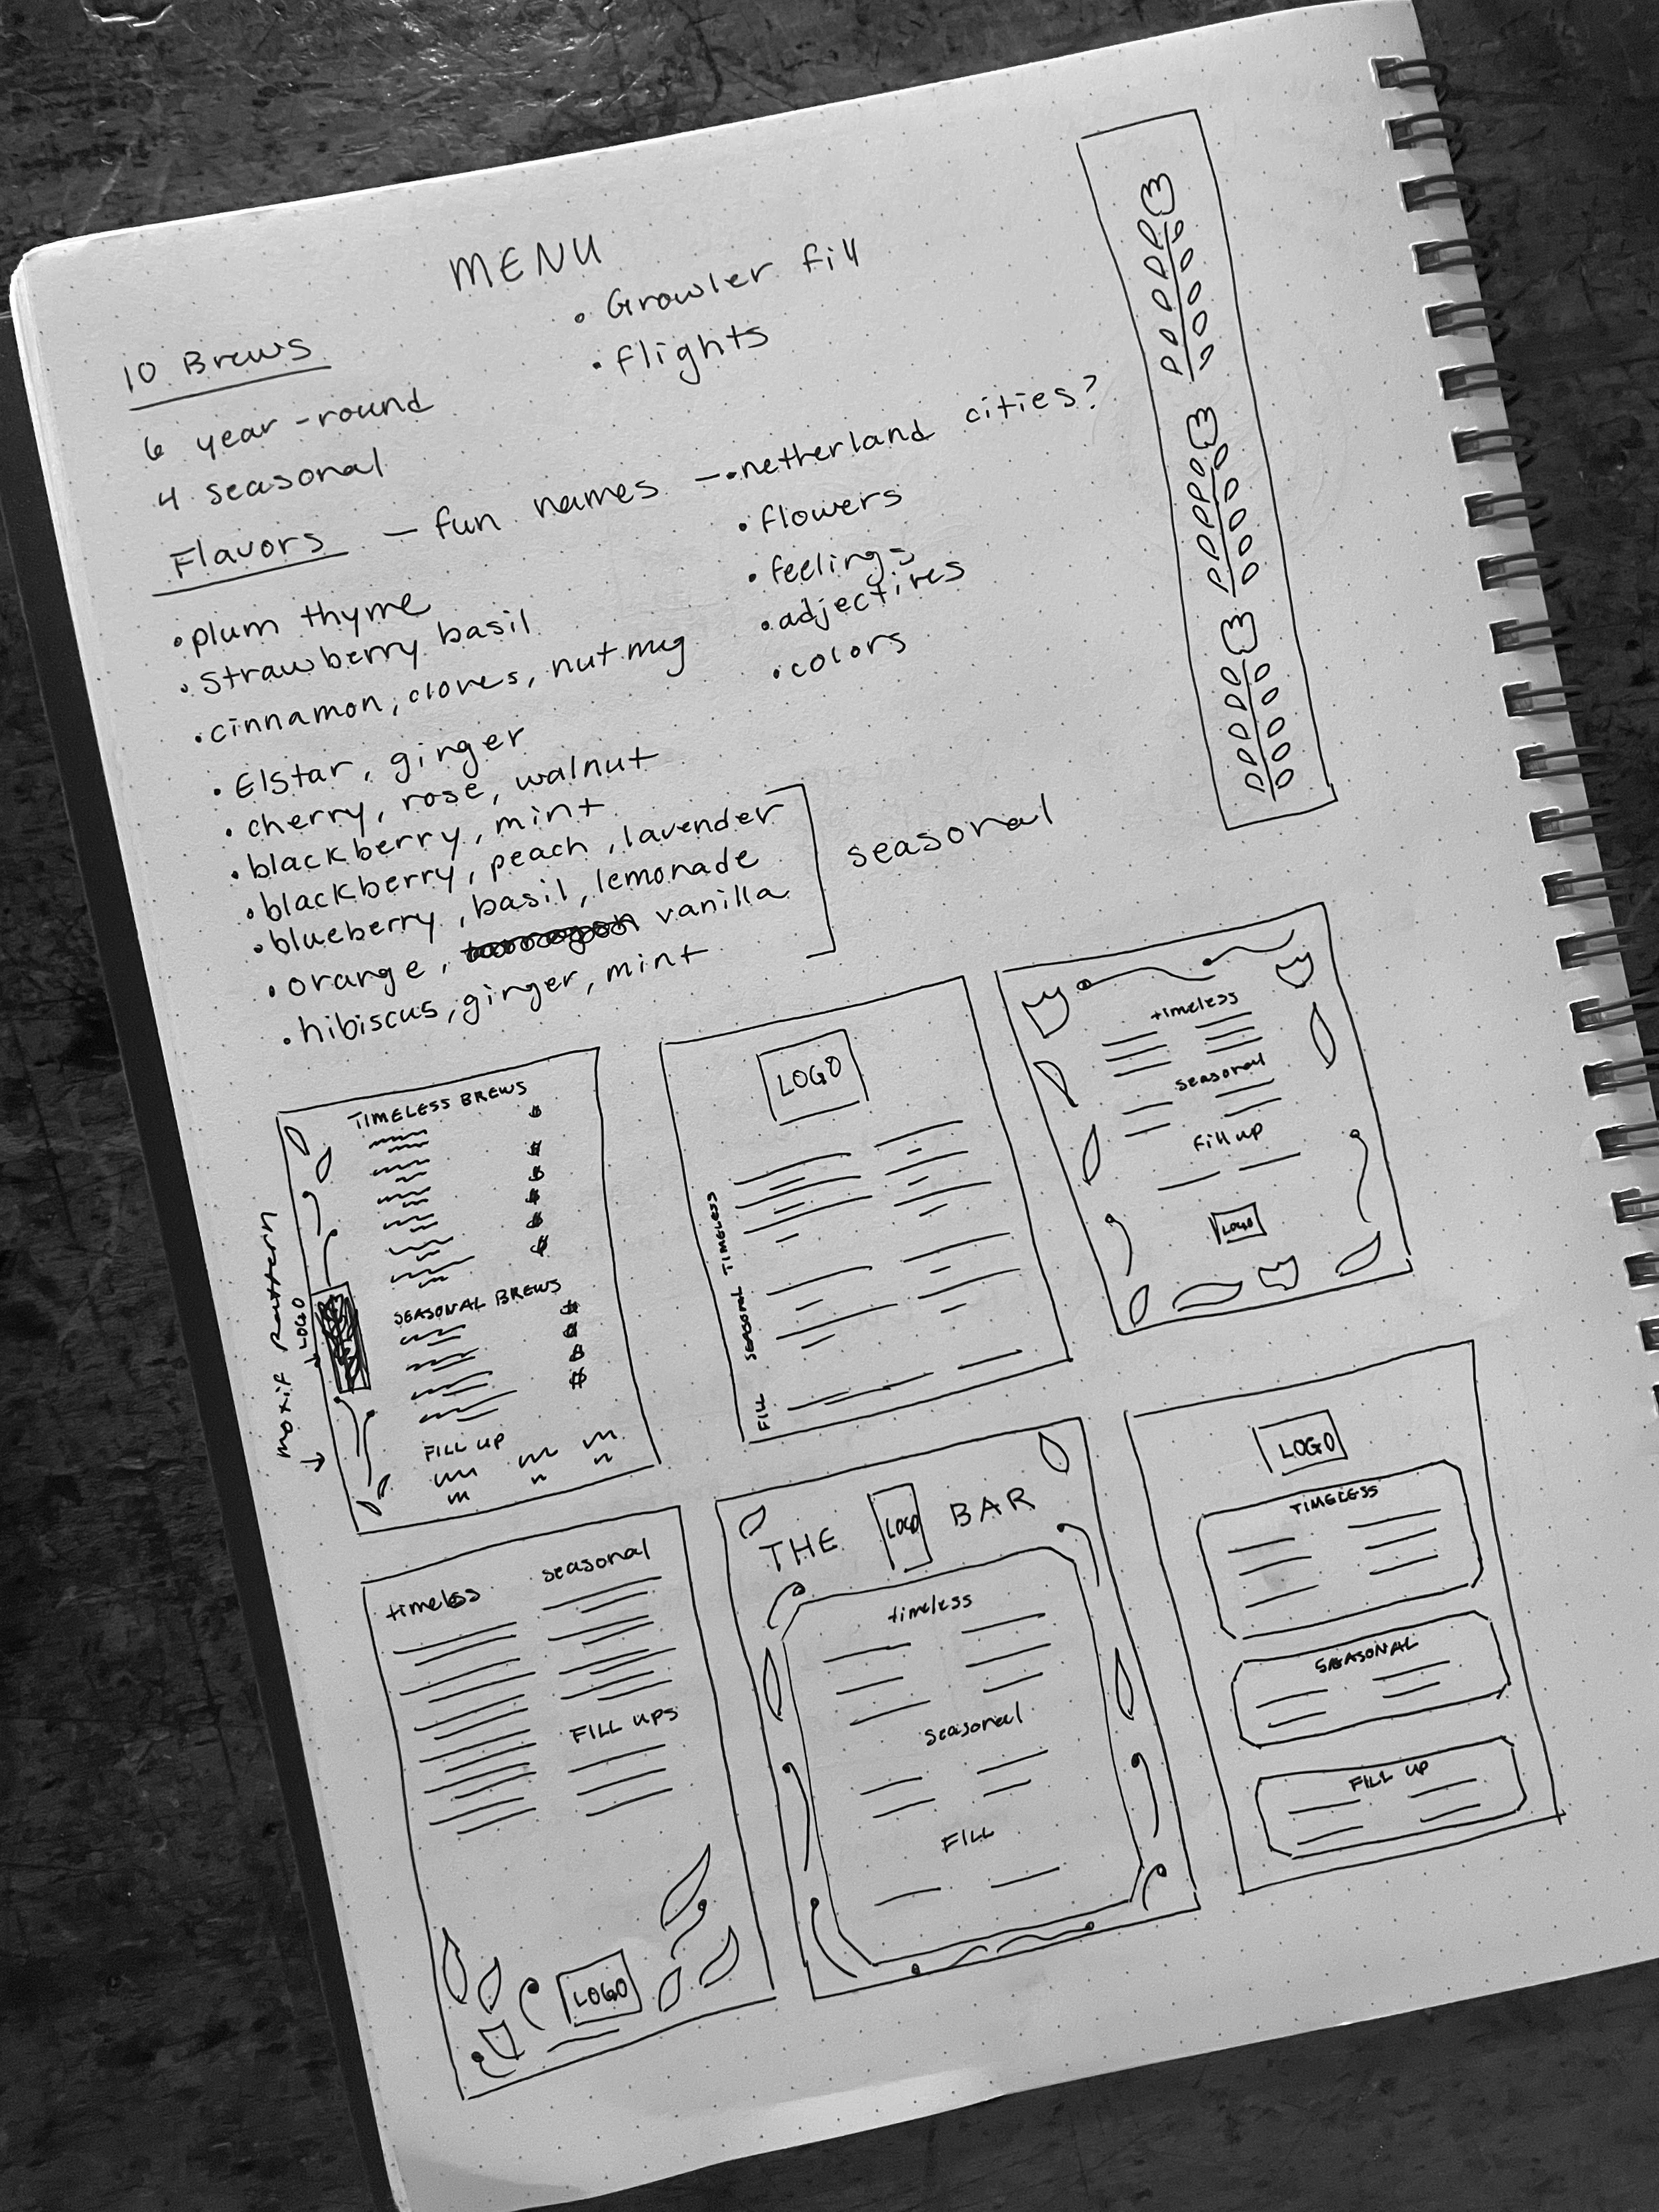 MENU
• Growler fill
• flights
10 Brews
6 year-round
4 seasonal
Flavors — fun names — • netherland cities?
• flowers
• feelings
• adjectives
• colors
• plum thyme
• strawberry basil
• cinnamon, cloves, nutmug
• Elstar, ginger
• cherry, rose, walnut
• blackberry, mint
• blackberry, peach, lavender
• blueberry, basil, lemonade
• orange, vanilla
• hibiscus, ginger, mint
seasonal
motif pattern
LOGO
TIMELESS BREWS
$
$
$
$
$
$
SEASONAL BREWS
$
$
$
$
FILL UP
LOGO
TIMELESS
SEASONAL
FILL
timeless
seasonal
fill up
LOGO
timeless
seasonal
FILL UPS
LOGO
THE LOGO BAR
timeless
seasonal
FILL
LOGO
TIMELESS
SEASONAL
FILL UP